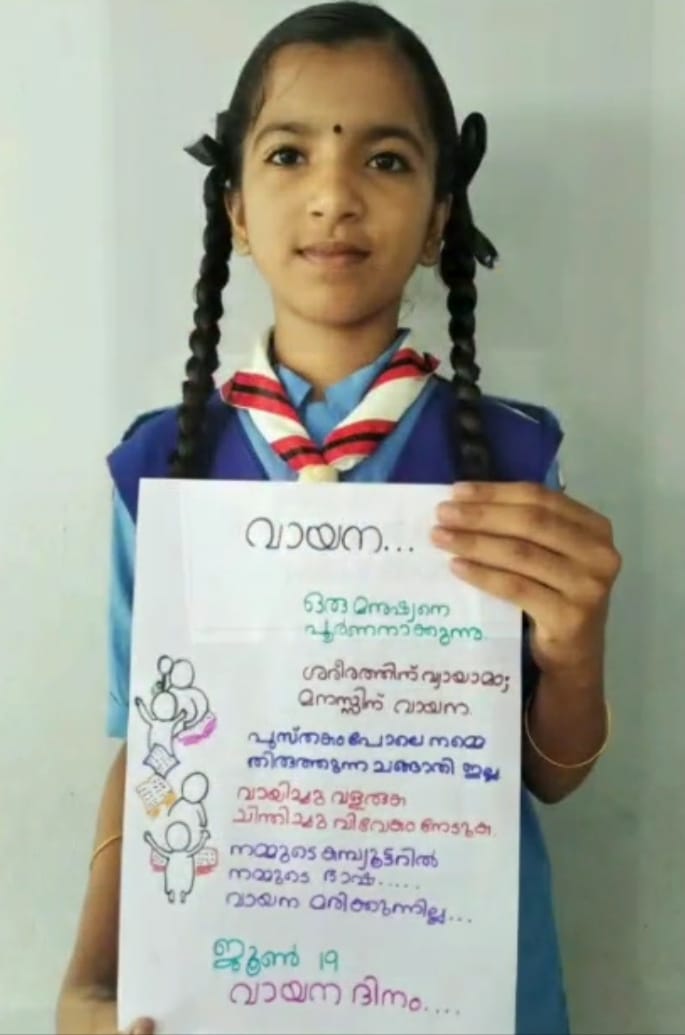 വായന...
ഒരു മനുഷ്യനെ
പൂർണനാക്കുന്നു.
ശരീരത്തിന് വ്യായാമം;
മനസ്സിന് വായന.
പുസ്തകംപോലെ നമ്മെ
തിരുത്തുന്ന ചങ്ങാതി ഇല്ല
വായിച്ചു വളരുക
ചിന്തിച്ചു വിവേകം നേടുക.
നമ്മുടെ കമ്പ്യൂട്ടറിൽ
നമ്മുടെ ഭാഷ.....
വായന മരിക്കുന്നില്ല...
ജൂൺ 19
വായന ദിനം....